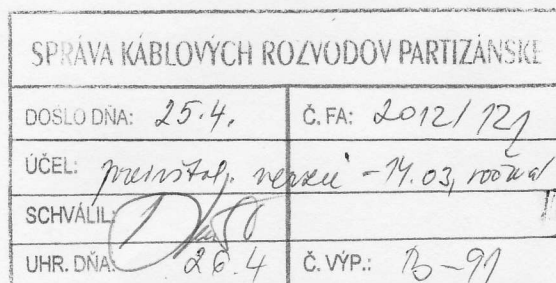 SPRÁVA KÁBLOVÝCH ROZVODOV PARTIZÁNSKE
DOŠLO DŇA: 25.4. Č. FA: 2012/121
ÚČEL: - 14.03,
SCHVÁLIL:
UHR. DŇA: 26.4 Č. VÝP.: B-91